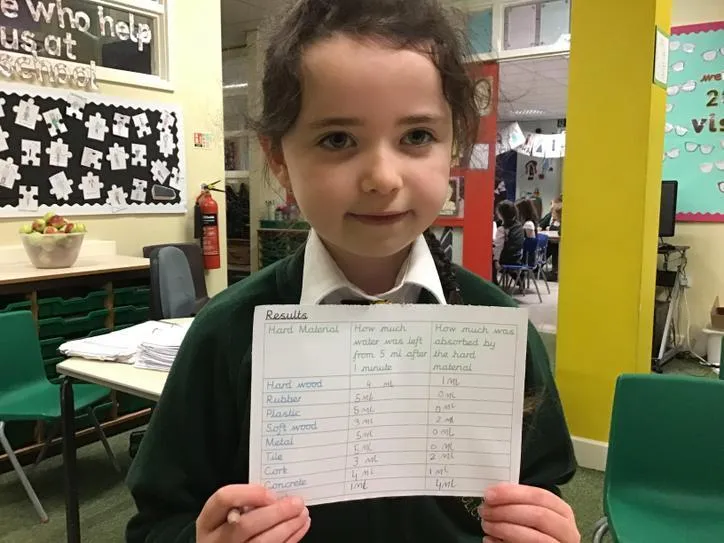 who help
us at
school
Results
Hard Material
How much
water was left
from 5 ml after
1 minute
How much was
absorbed by
the hard
material
Hard wood 4 ml 1ML
Rubber 5ML 0ML
Plastic 5ML 0ML
Soft wood 3ML 2ML
Metal 5ML 0ML
Tile 5ML 0ML
Cork 3ML 2ML
Concrete 4ML 1ML
1ML 4ML